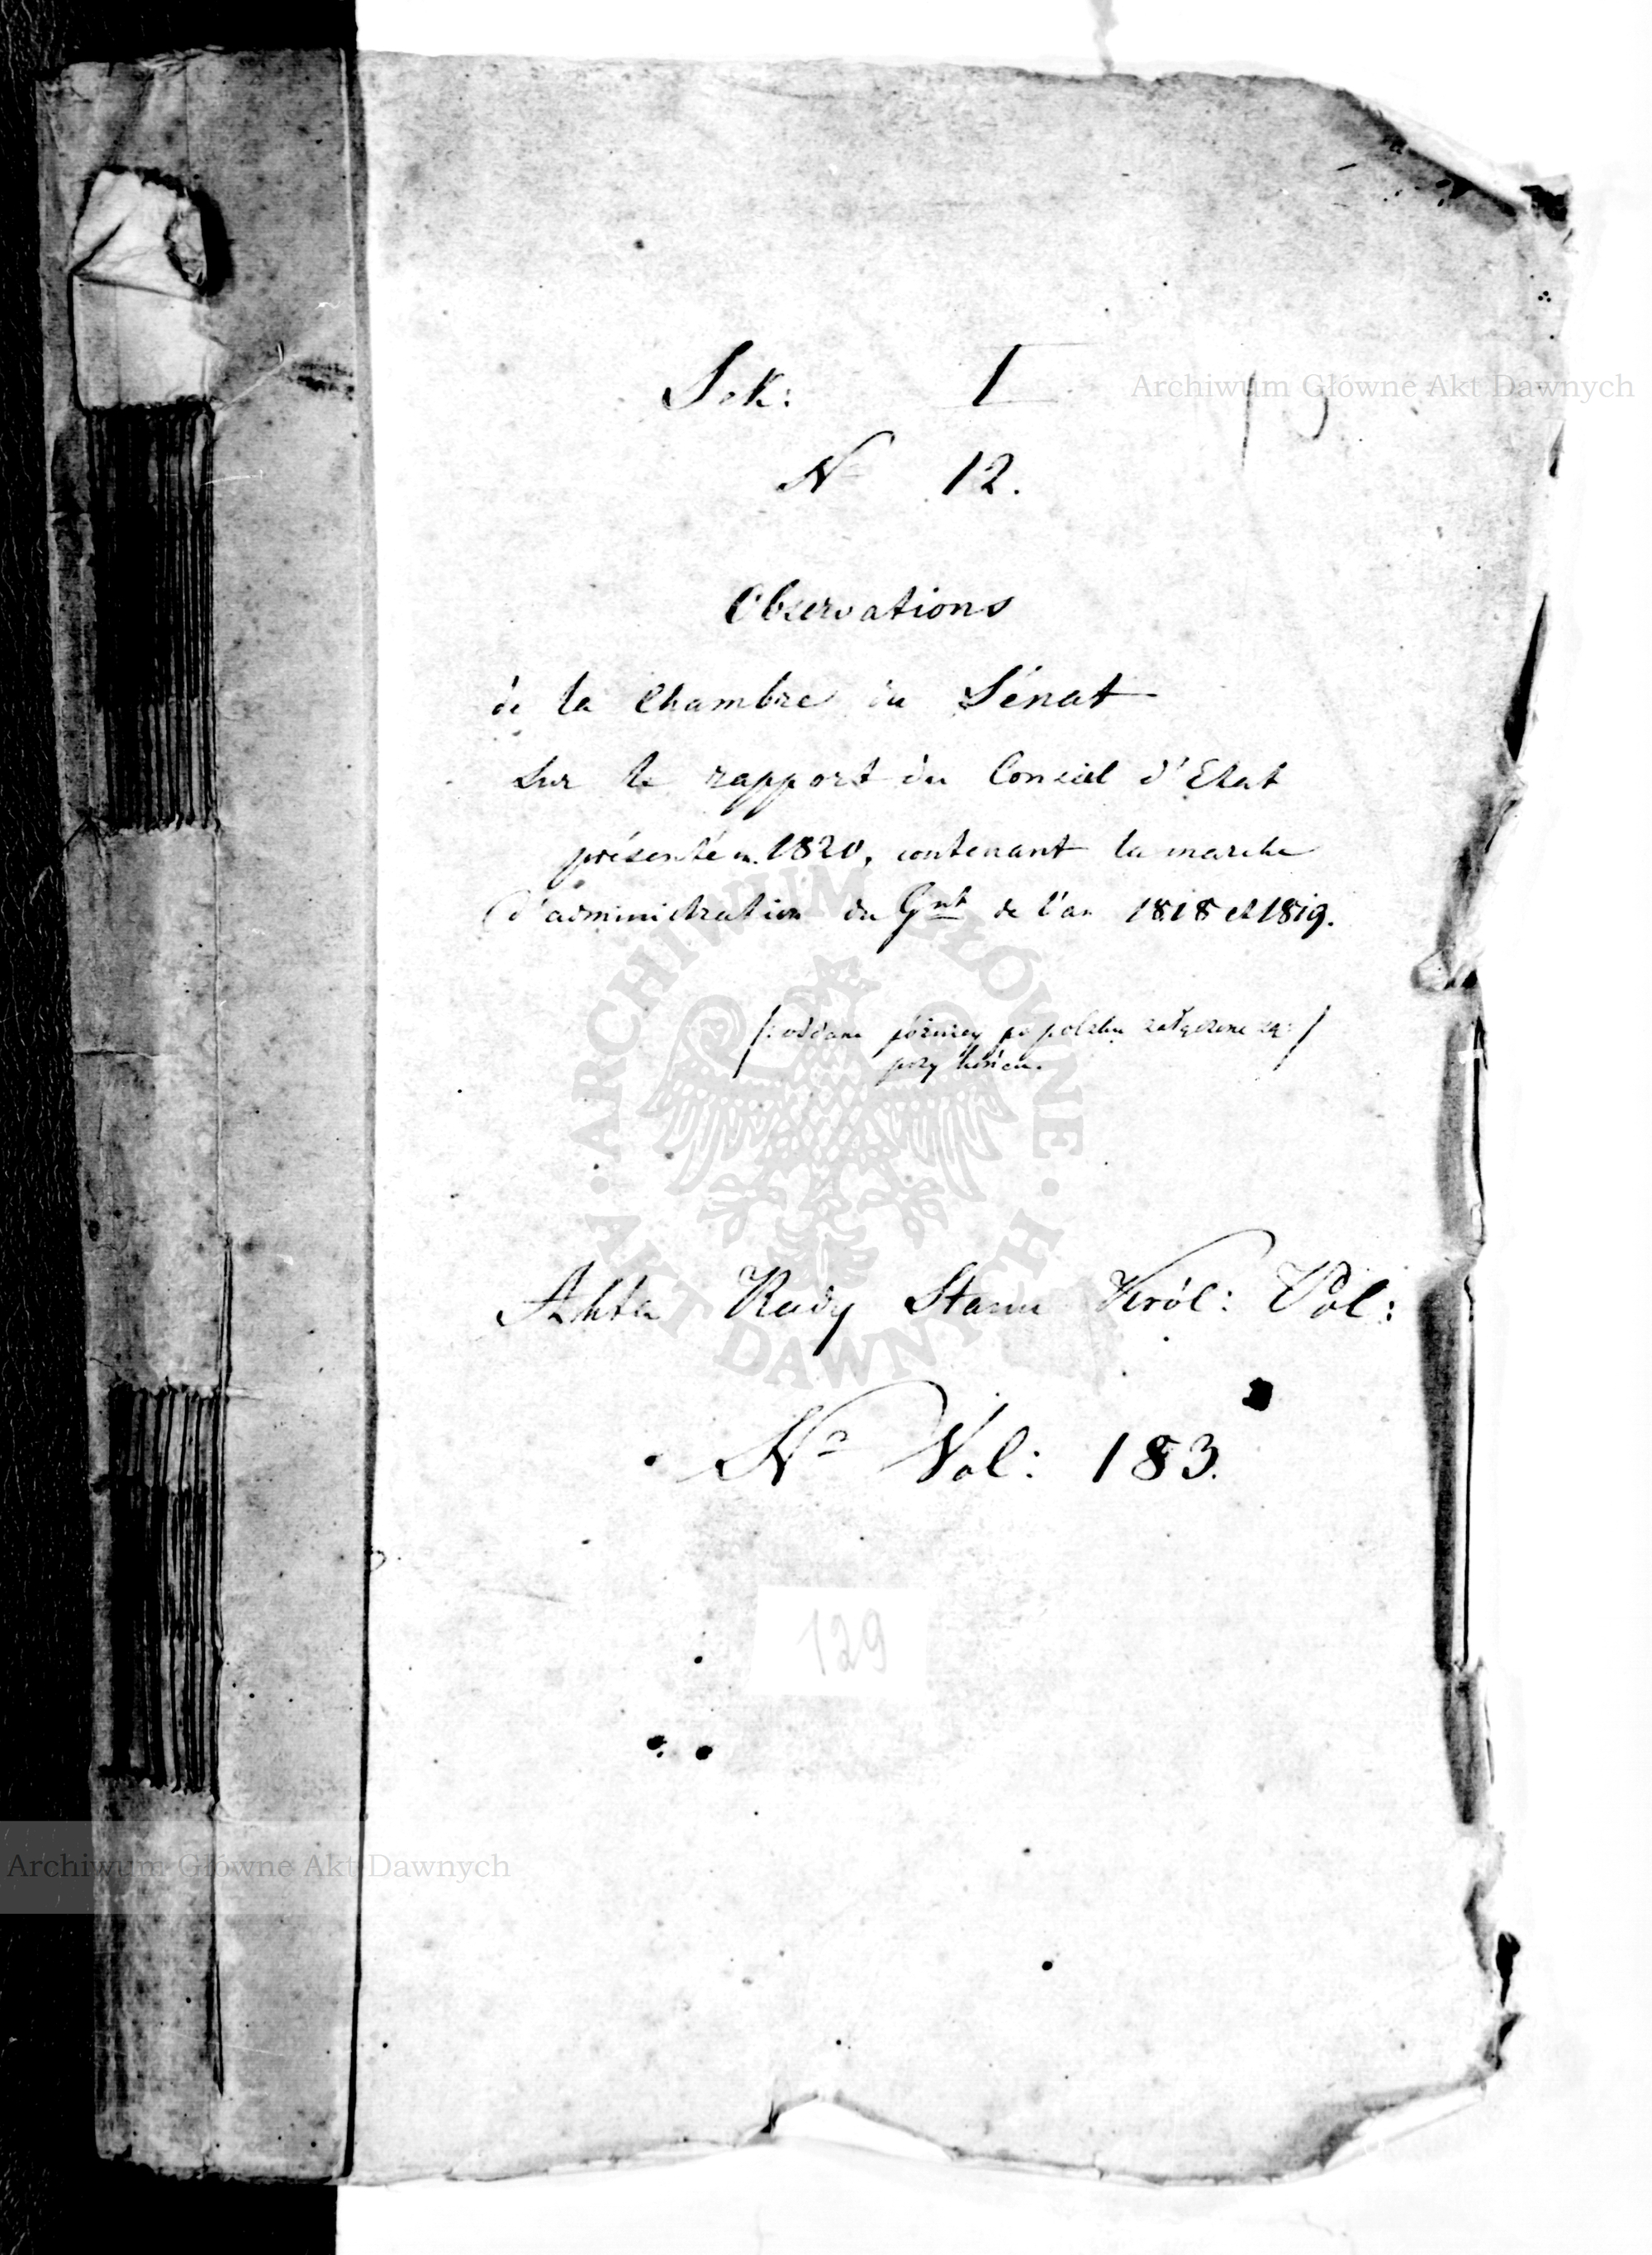 Sek: I
Archiwum Główne Akt Dawnych
No 12.
Observations
de la Chambre du Sénat
sur le rapport du Conseil d'Etat
présenté en 1820, contenant la marche
d'administration du Gnt de l'an 1818 et 1819.
/: oddane późniey po polsku załączone są :/
przy końcu.
ARCHIWUM GŁÓWNE
AKT DAWNYCH
Akta Rady Stanu Król: Pol:
No Vol: 183.
129
Archiwum Główne Akt Dawnych